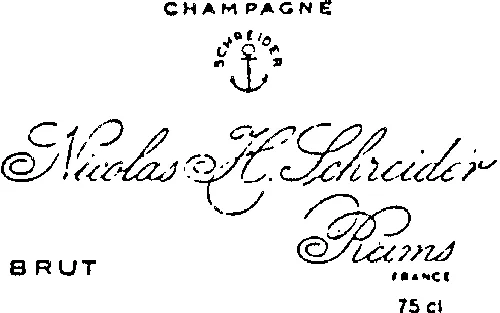 CHAMPAGNE
SCHREIDER
Nicolas H. Schreider
Reims
FRANCE
BRUT
75 cl